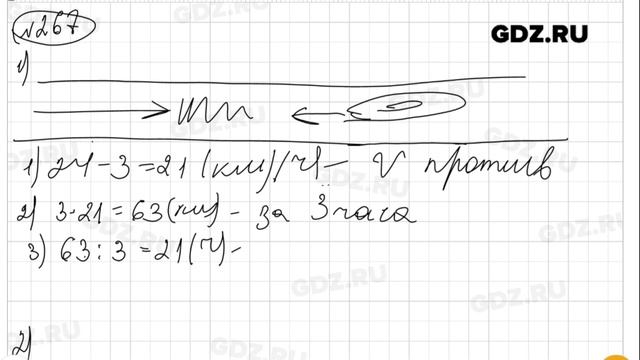 №267
GDZ.RU
1)
1) 24-3=21 (км/ч) - V против
2) 3·21=63(км) - за 3 часа
3) 63:3=21(ч) -
2)